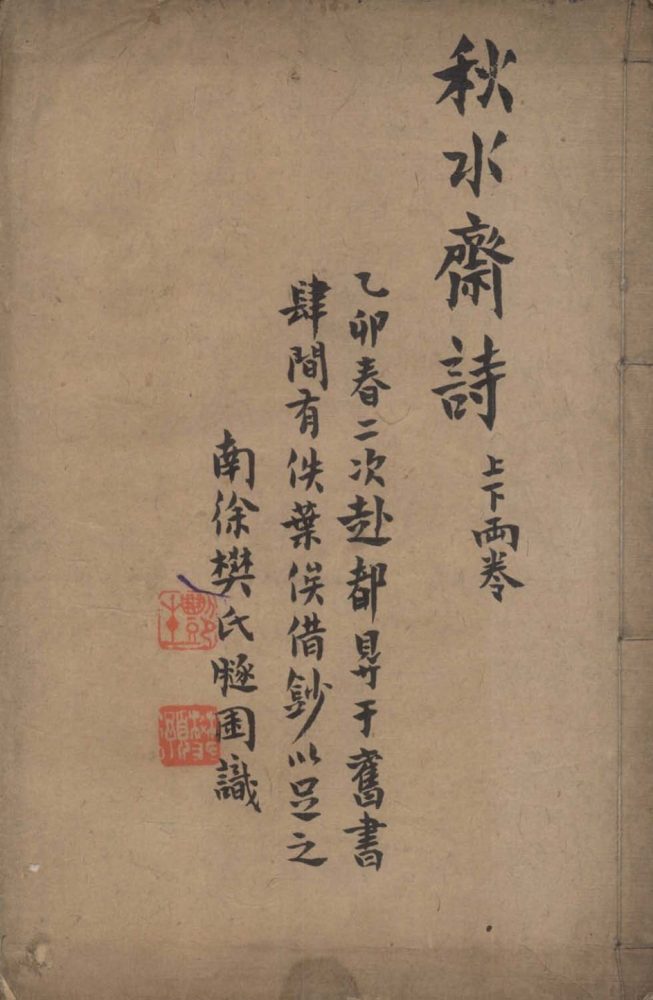 秋水齋詩
上下兩卷
乙卯春二次赴都㝵于舊書
肆間有佚葉俟借鈔以足之
南徐樊氏 困識